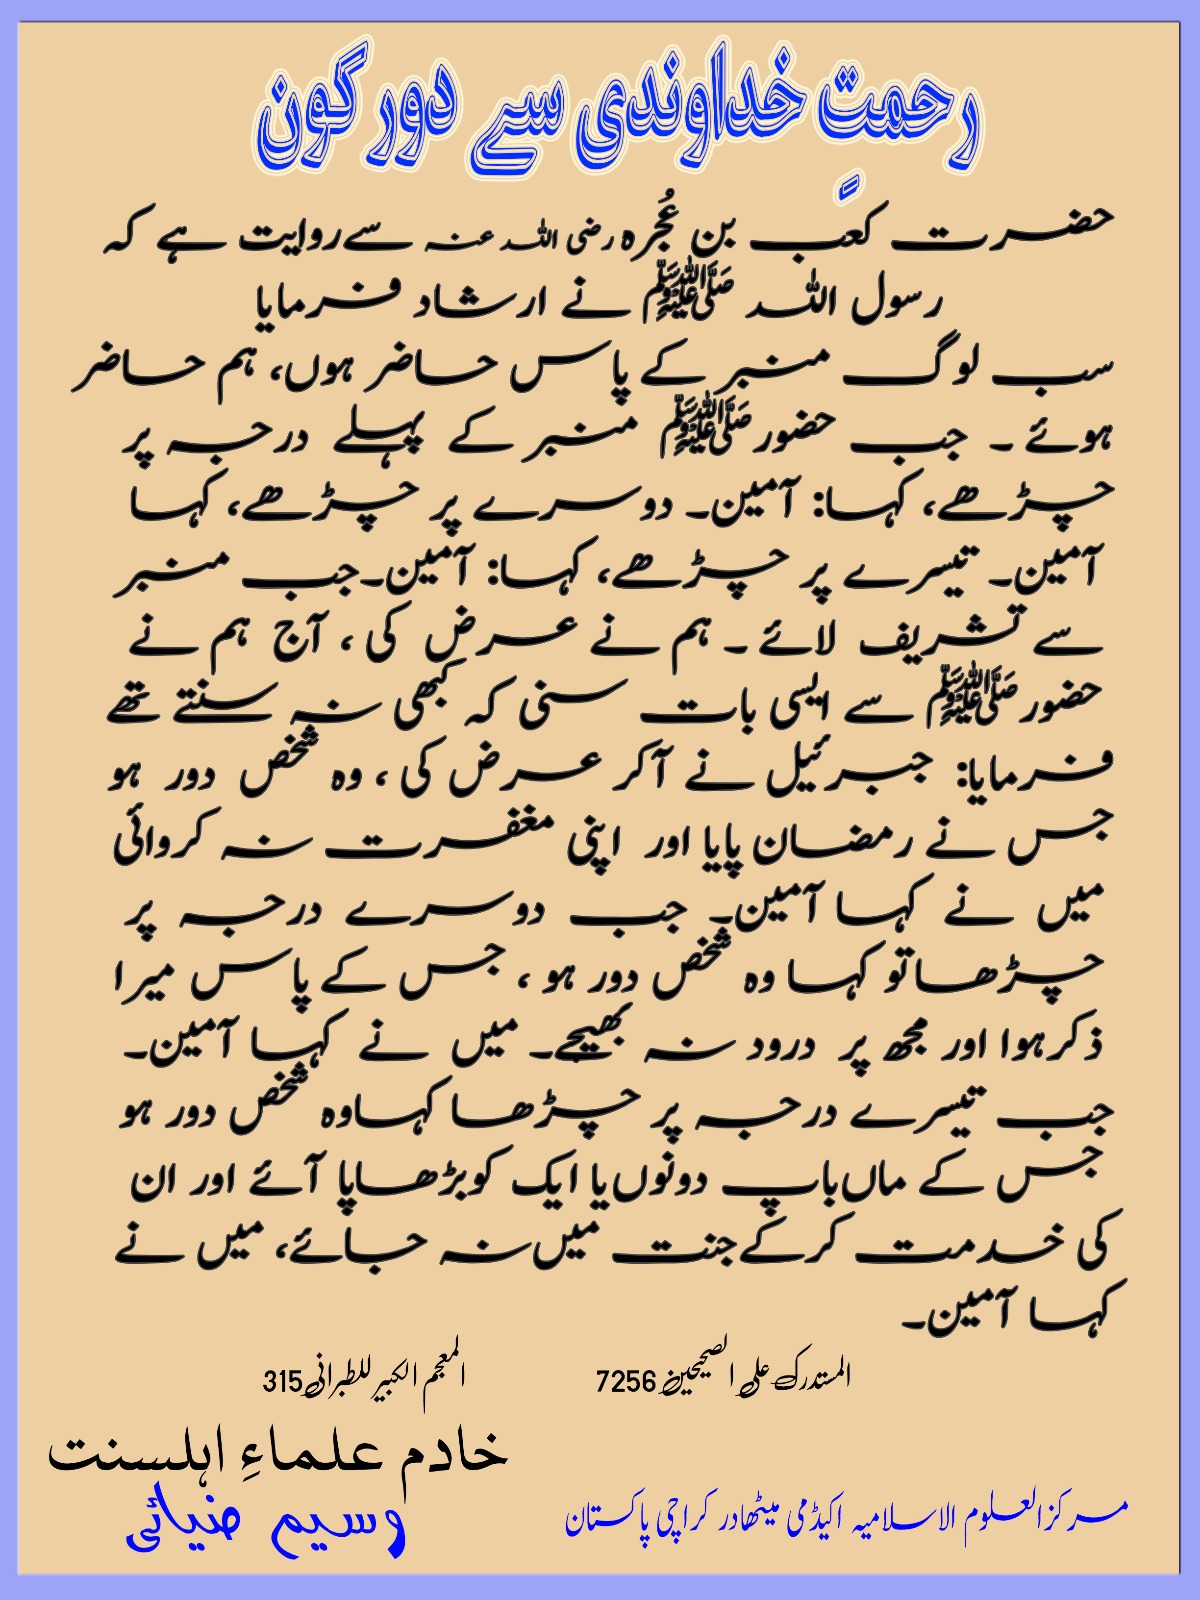 رحمتِ خداوندی سے دور کون
حضرت کعب بن عُجرہ رضی اللہ عنہ سے روایت ہے کہ
رسول اللہ ﷺ نے ارشاد فرمایا
سب لوگ منبر کے پاس حاضر ہوں، ہم حاضر
ہوئے ۔ جب حضور ﷺ منبر کے پہلے درجہ پر
چڑھے، کہا: آمین۔ دوسرے پر چڑھے، کہا
آمین۔ تیسرے پر چڑھے، کہا: آمین۔جب منبر
سے تشریف لائے ۔ ہم نے عرض کی ، آج ہم نے
حضور ﷺ سے ایسی بات سنی کہ کبھی نہ سنتے تھے
فرمایا: جبرئیل نے آکر عرض کی ، وہ شخص دور ہو
جس نے رمضان پایا اور اپنی مغفرت نہ کروائی
میں نے کہا آمین۔ جب دوسرے درجہ پر
چڑھا تو کہا وہ شخص دور ہو ، جس کے پاس میرا
ذکر ہوا اور مجھ پر درود نہ بھیجے۔ میں نے کہا آمین۔
جب تیسرے درجہ پر چڑھا کہا وہ شخص دور ہو
جس کے ماں باپ دونوں یا ایک کو بڑھاپا آئے اور ان
کی خدمت کر کے جنت میں نہ جائے، میں نے
کہا آمین۔
المستدرک علی الصحیحین 7256 المعجم الکبیر للطبرانی 315
خادم علماءِ اہلسنت
وسیم ضیائی
مرکز العلوم الاسلامیہ اکیڈمی میٹھادر کراچی پاکستان